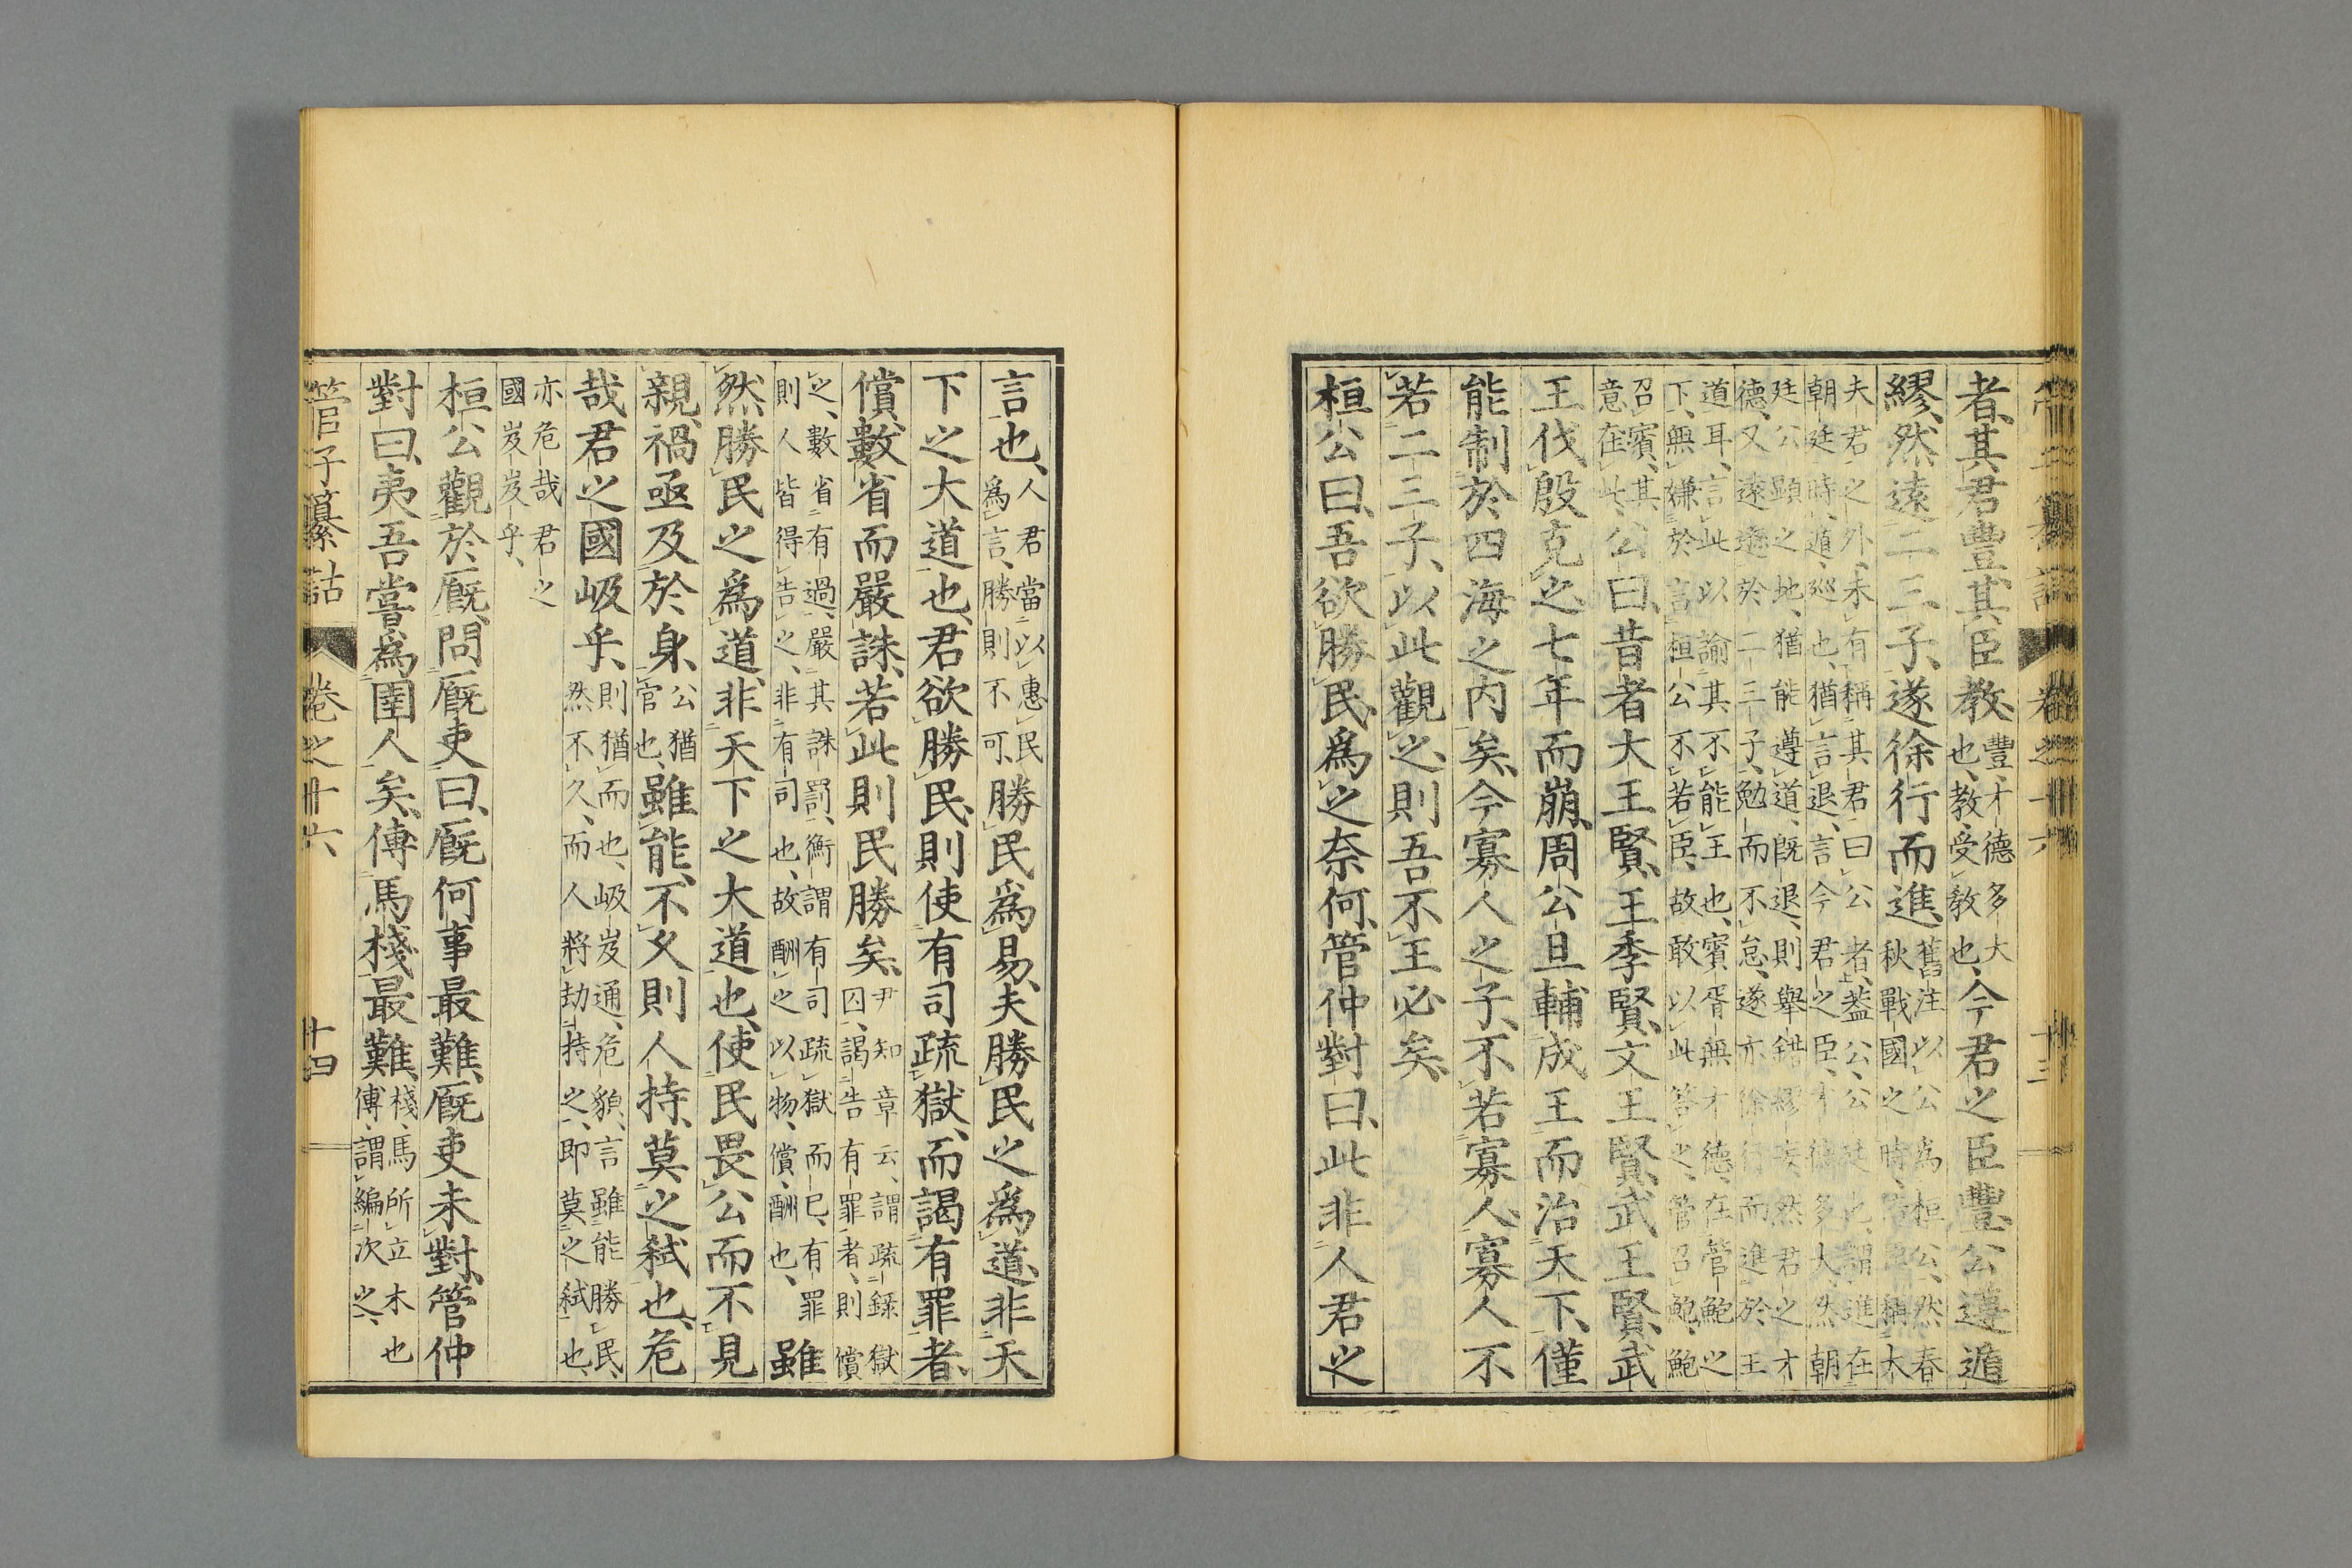 者、其君豐、其臣教、豐、才德多大也、教、受教也、今君之臣豐、公遵遁
繆、然遠二三子、遂徐行而進、舊注以公爲桓公、然春秋戰國之時、稱大
夫君之外、未有稱其君曰公者、蓋公、公廷也、謂進在
朝廷時、遁、巡也、猶言退、言今君之臣、才德多大、然朝
廷公顯之地、猶能遵道、既退、則舉錯繆妄、然君之才
德、又遠於二三子、勉而不怠、遂亦徐行而進於王
道耳、言此以諭其不能王也、賓胥無才德、在管鮑之
下、無嫌於言桓公不若臣、故敢以此答之、管召鮑、鮑
召賓、其意在此、公曰、昔者大王賢、王季賢、文王賢、武王賢、武
王伐殷克之、七年而崩、周公旦輔成王而治天下、僅
能制於四海之内矣、今寡人之子、不若寡人、寡人不
若二三子、以此觀之、則吾不王必矣、
桓公曰、吾欲勝民、爲之奈何、管仲對曰、此非人君之
言也、人君當以惠民爲言、勝則不可、勝民爲易、夫勝民之爲道、非天
下之大道也、君欲勝民、則使有司疏獄、而謁有罪者、
償、數省而嚴誅、若此則民勝矣、尹知章云、謂疏錄獄囚、謁告有罪者、則償
之、數省有過、嚴其誅罰、衡謂有司疏獄而已、有罪
則人皆得告之、非有司也、故酬之以物、償、酬也、雖
然勝民之爲道、非天下之大道也、使民畏公而不見
親、禍亟及於身、公猶官也、雖能、不久則人持、莫之弑也、危
哉君之國岋乎、則猶而也、岋岌通、危貌、言雖能勝民、然不久、而人將劫持之、即莫之弑也、
亦危哉君之
國岌岌乎、
桓公觀於廐、問廐吏曰、廐何事最難、廐吏未對、管仲
對曰、夷吾嘗爲圉人矣、傅馬棧最難、棧、馬所立木也傅、謂編次之、
管子纂詁 卷之廿六 十四